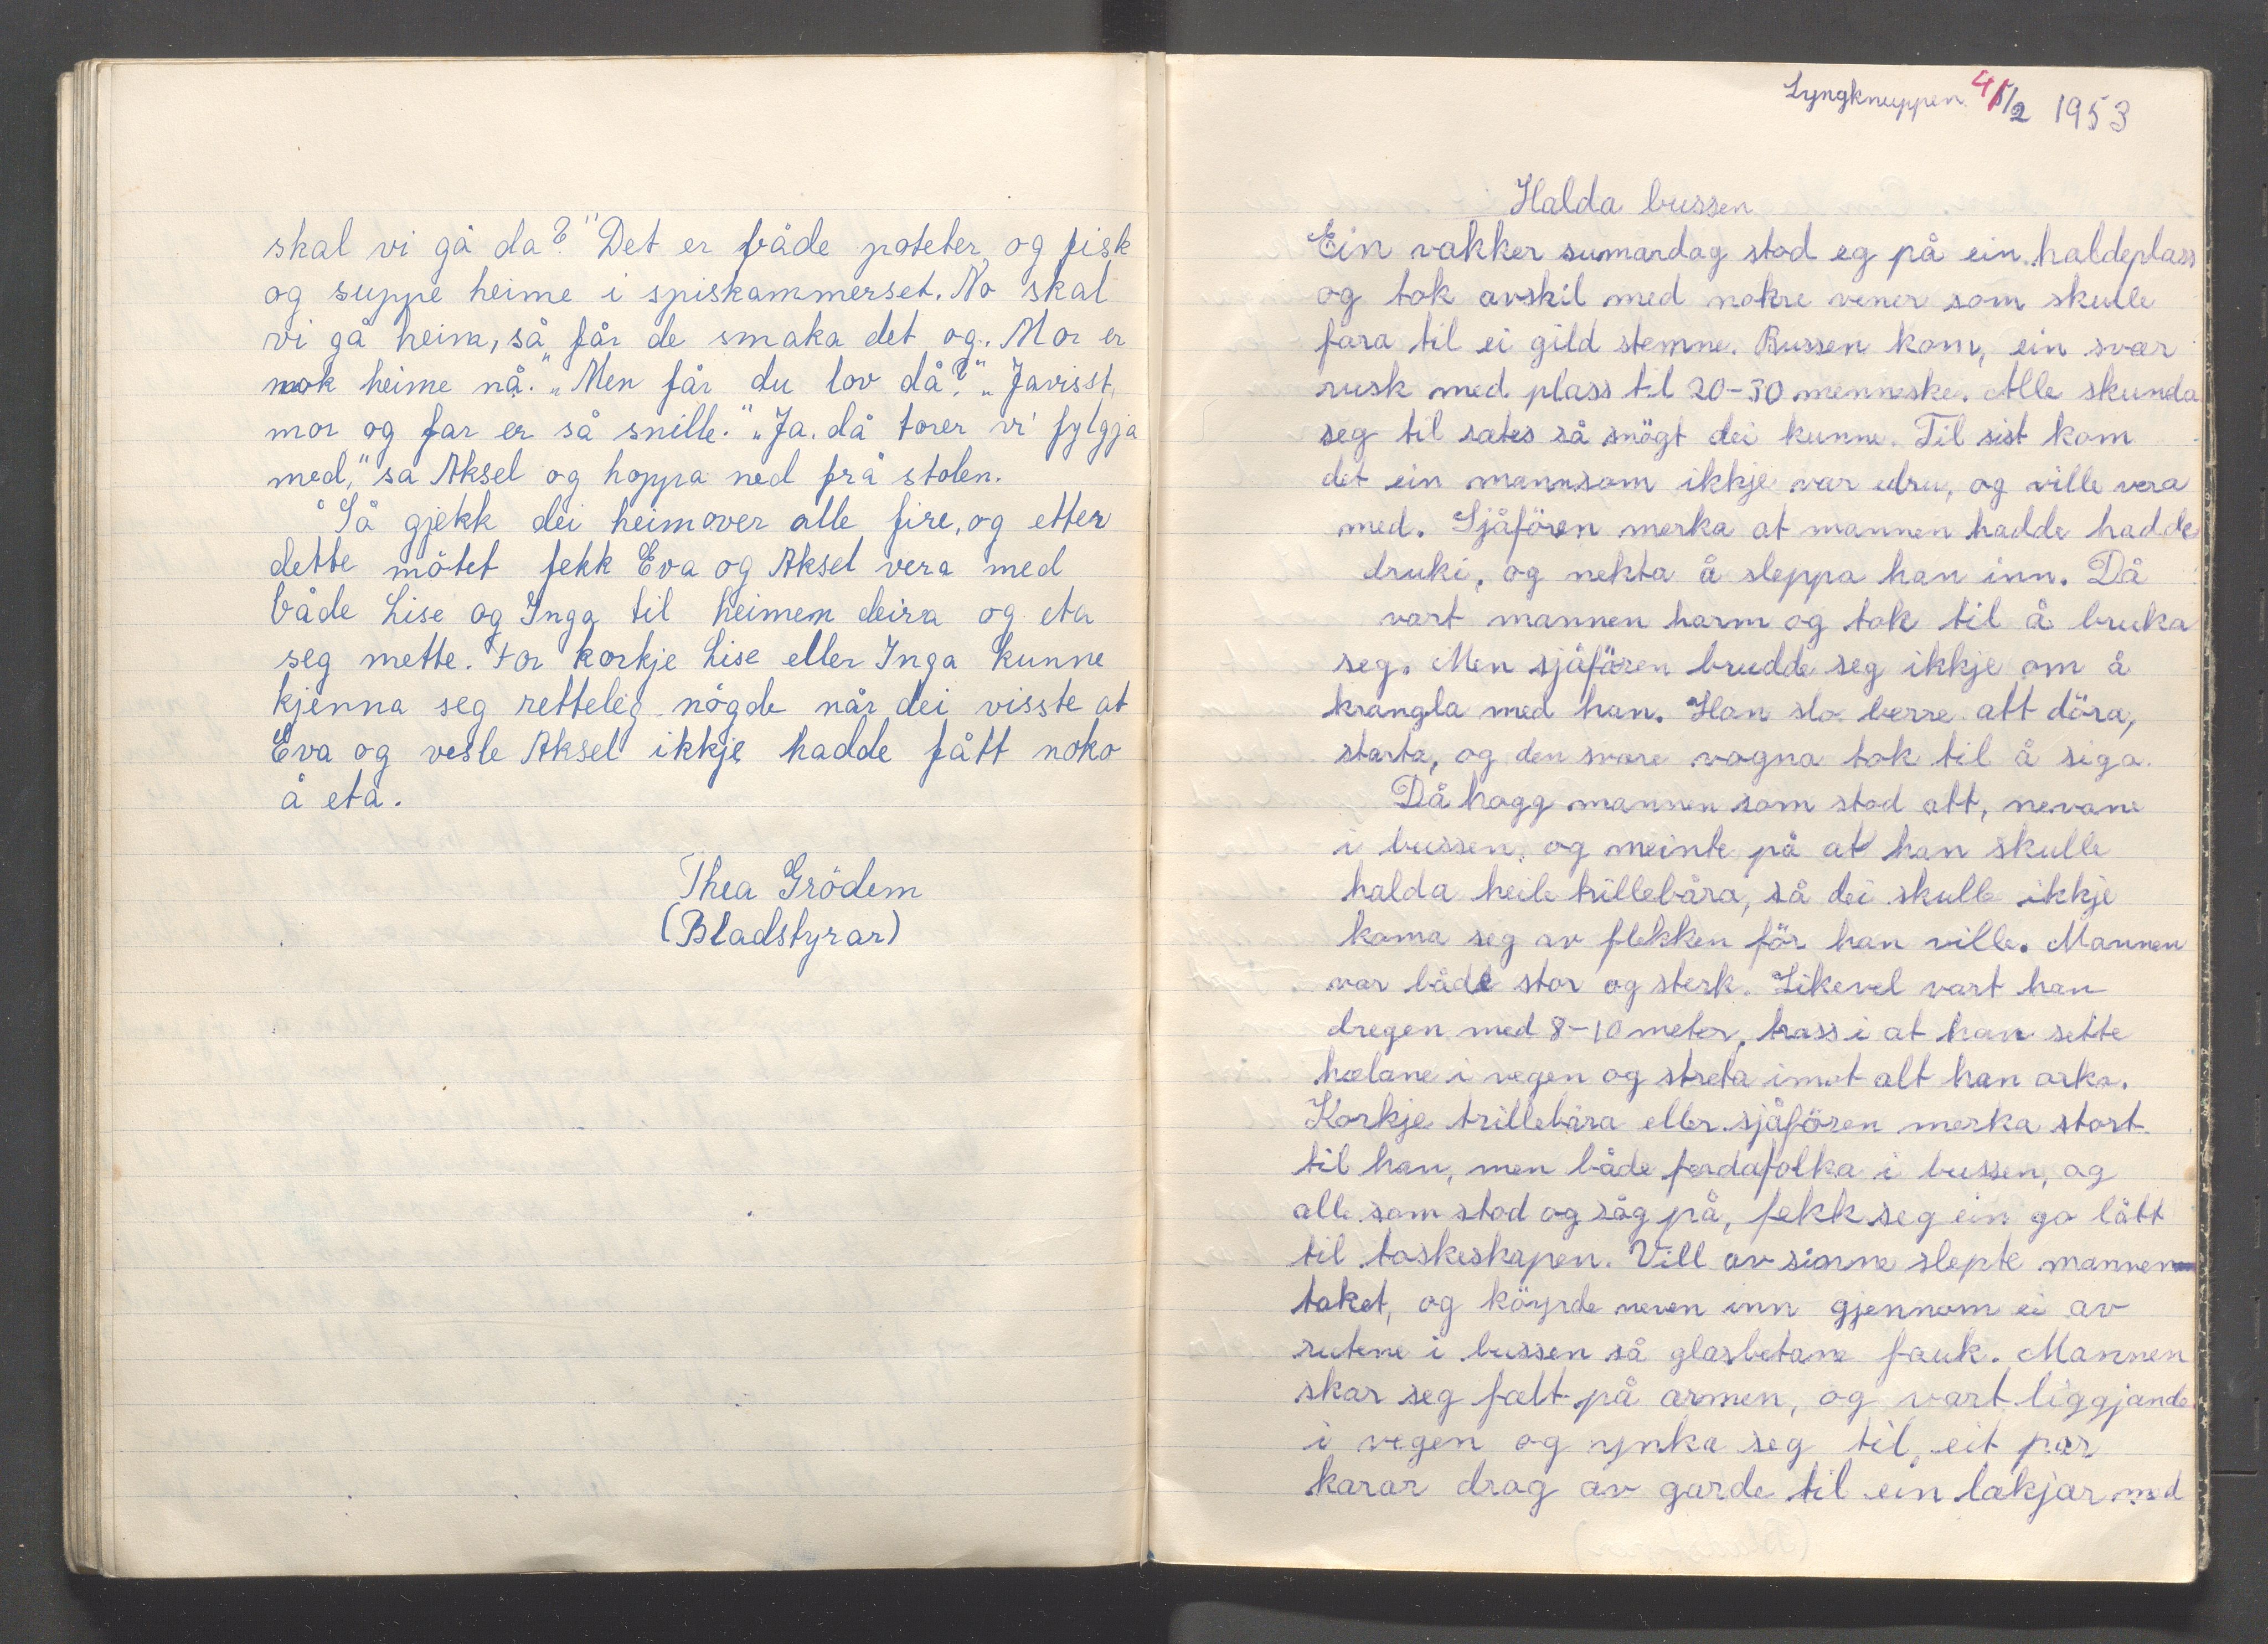 skal vi gå da?" Det er både poteter og fisk
og suppe heime i spiskammerset. No skal
vi gå heim, så får de smaka det og. Mor er
nok heime nå." „Men får du lov då?" „Javisst,
mor og far er så snille." „Ja, då torer vi fylgja
med," sa Aksel og hoppa ned frå stolen.
Så gjekk dei heimover alle fire, og etter
dette mötet fekk Eva og Aksel vera med
både Lise og Inga til heimen deira og eta
seg mette. For korkje Lise eller Inga kunne
kjenna seg retteleg nögde når dei visste at
Eva og vesle Aksel ikkje hadde fått noko
å eta.
Thea Grödem
(Bladstyrar)
Lyngknuppen 4/2 1953
Halda bussen
Ein vakker sumardag stod eg på ein haldeplass
og tok avskil med nokre vener som skulle
fara til ei gild stemne. Bussen kom, ein svær
rusk med plass til 20-30 menneske. Alle skunda
seg til sætes så snögt dei kunne. Til sist kom
det ein mann som ikkje var edru, og ville vera
med. Sjåfören merka at mannen hadde hadde
druki, og nekta å sleppa han inn. Då
vart mannen harm og tok til å bruka
seg. Men sjåfören brudde seg ikkje om å
krangla med han. Han slo berre att döra,
starta, og den svære vogna tok til å siga.
Då hogg mannen som stod att, nevane
i bussen, og meinte på at han skulle
halda heile trillebåra, så dei skulle ikkje
koma seg av flekken för han ville. Mannen
var både stor og sterk. Likevel vart han
dregen med 8-10 meter, trass i at han sette
hælane i vegen og streta imot alt han orka.
Korkje trillebåra eller sjåfören merka stort
til han, men både ferdafolka i bussen, og
alle som stod og såg på, fekk seg ein go lått
til toskeskapen. Vill av sinne slepte mannen
taket, og köyrde neven inn gjennom ei av
rutene i bussen så glasbetane fauk. Mannen
skar seg fælt på armen, og vart liggjande
i vegen og ynka seg til, eit par
karar drog av garde til ein lækjar med